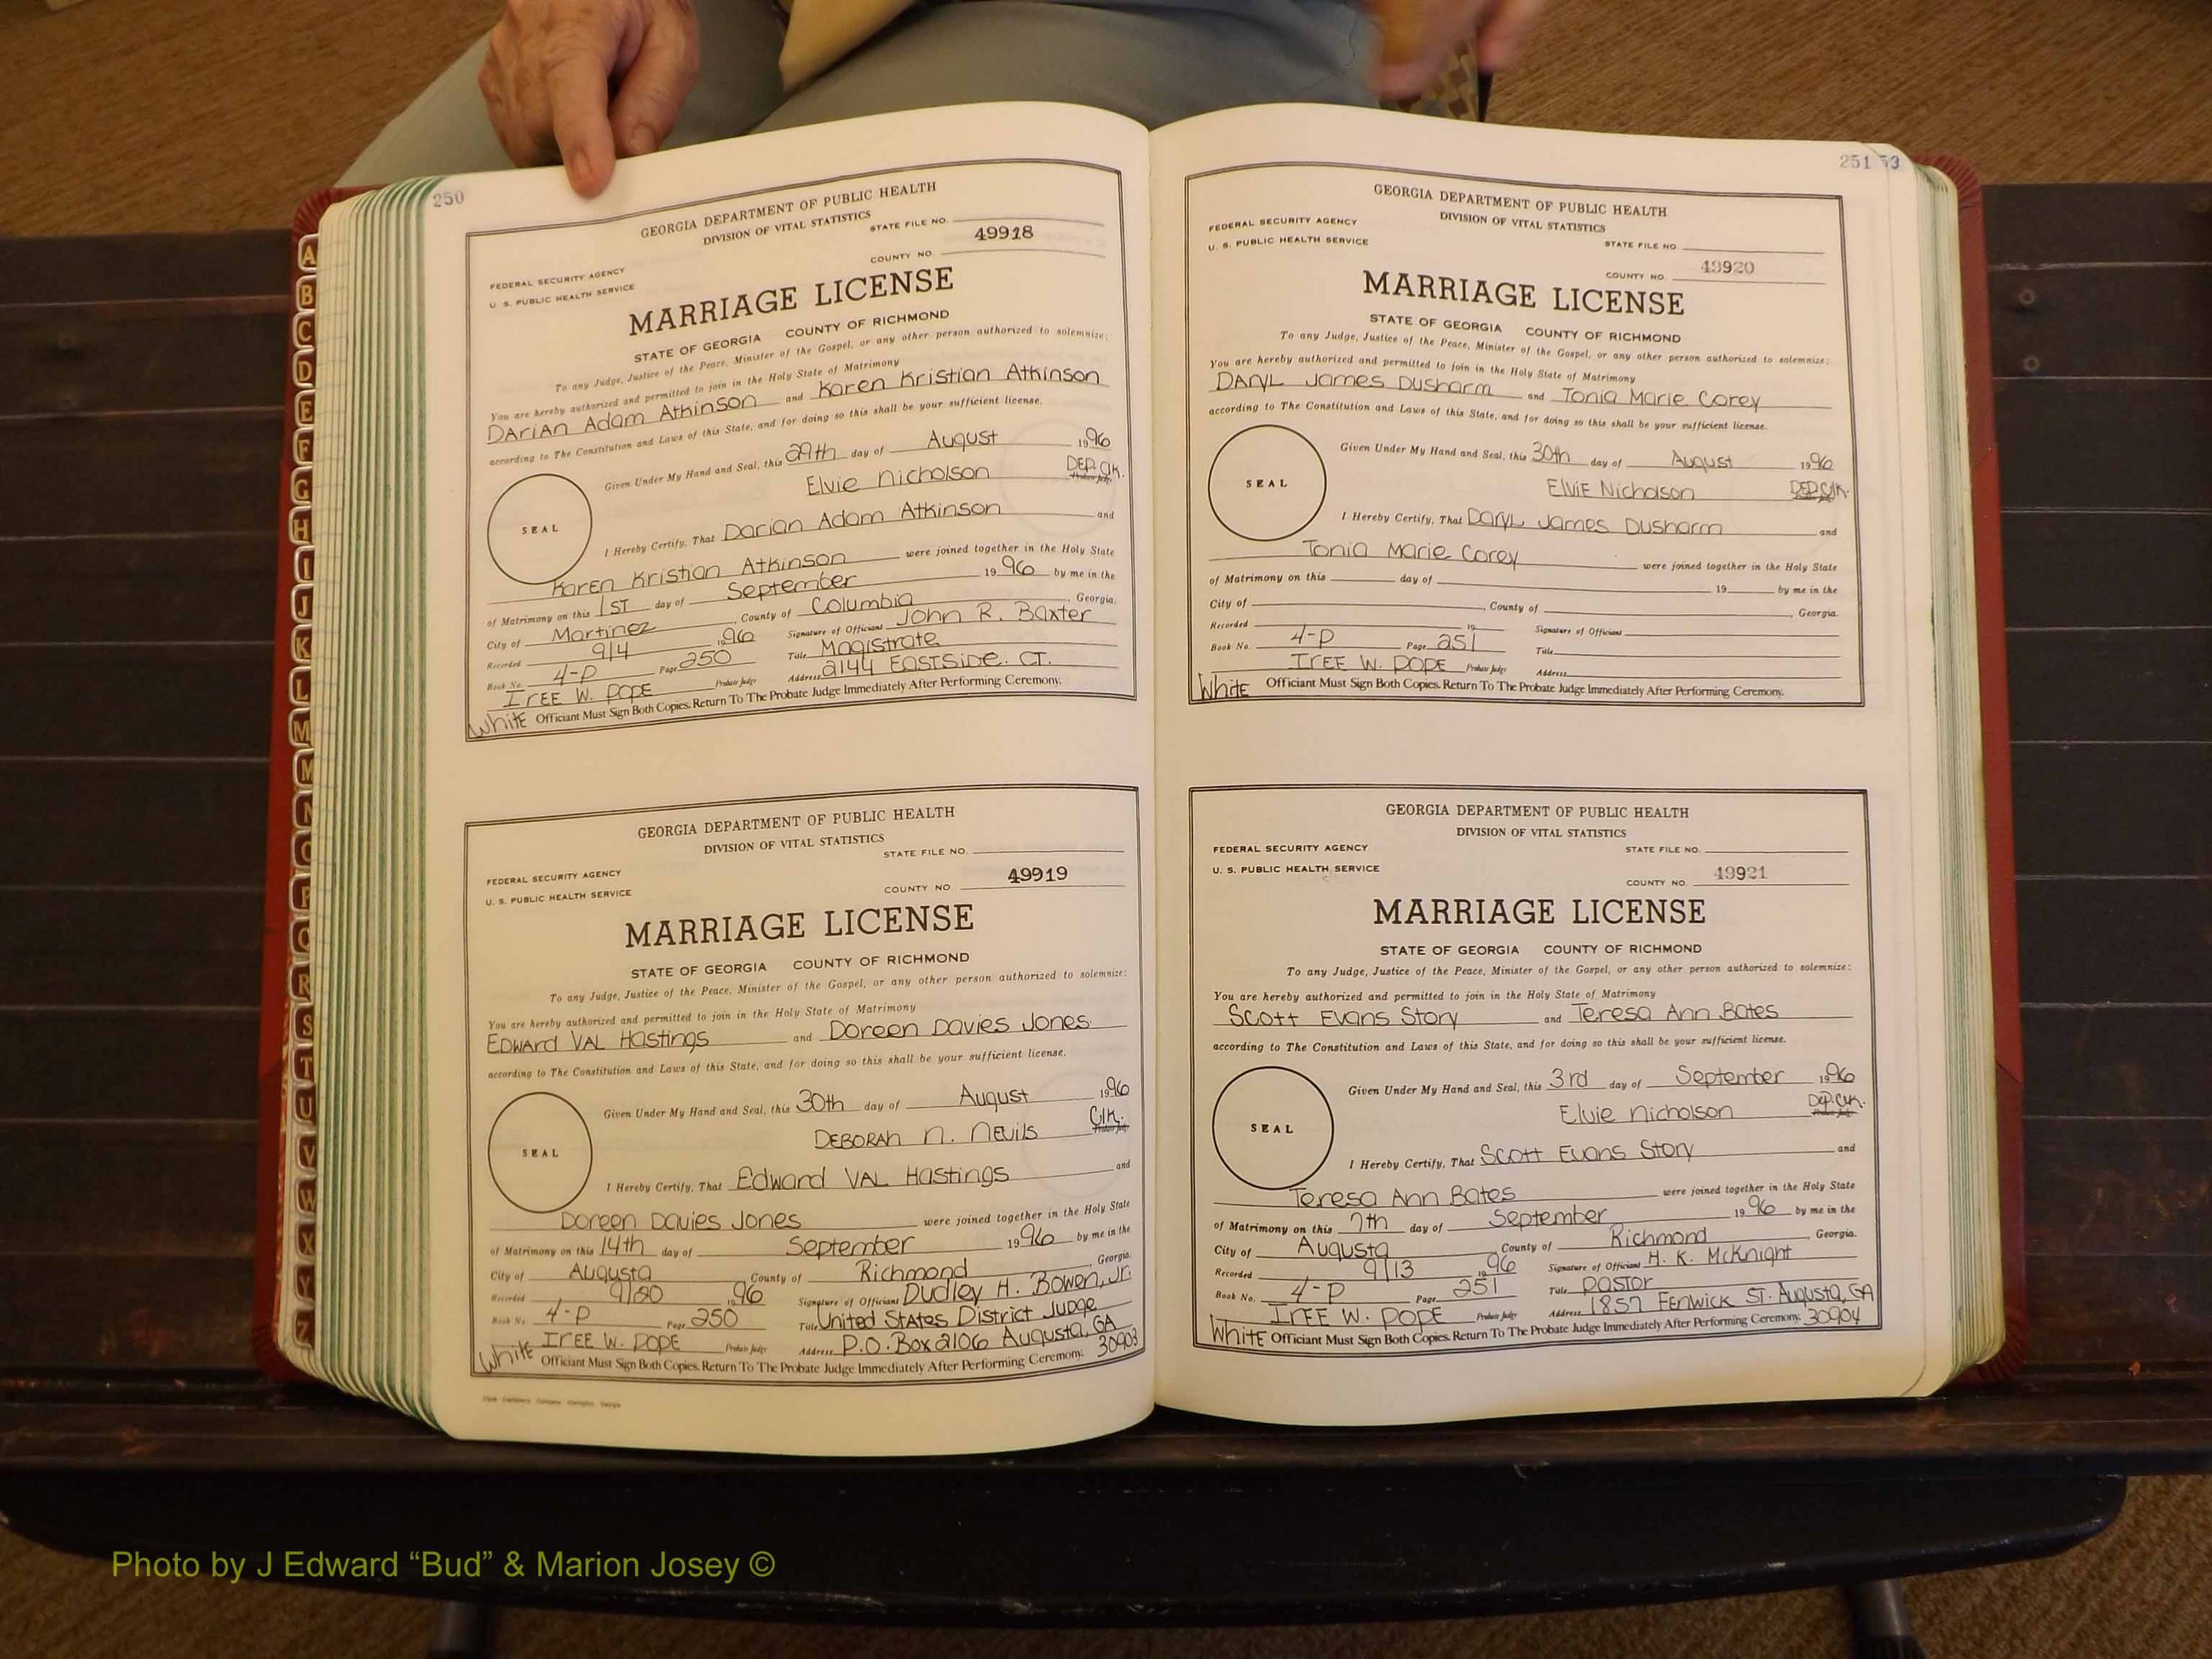 250
GEORGIA DEPARTMENT OF PUBLIC HEALTH
DIVISION OF VITAL STATISTICS
STATE FILE NO.
49918
COUNTY NO.
FEDERAL SECURITY AGENCY
U. S. PUBLIC HEALTH SERVICE
MARRIAGE LICENSE
STATE OF GEORGIA COUNTY OF RICHMOND
To any Judge, Justice of the Peace, Minister of the Gospel, or any other person authorized to solemnize:
You are hereby authorized and permitted to join in the Holy State of Matrimony
DArIAN Adam Atkinson and Karen Kristian Atkinson
according to The Constitution and Laws of this State, and for doing so this shall be your sufficient license.
Given Under My Hand and Seal, this 29th day of August 1996
Elvie Nicholson DEP. Clk. Probate Judge
SEAL
I Hereby Certify, That Darian Adam Atkinson and
KarEn Kristian Atkinson were joined together in the Holy State
of Matrimony on this 1ST day of September 1996 by me in the
City of Martinez, County of Columbia, Georgia.
Recorded 9/4 1996 Signature of Officiant John R. Baxter
Book No. 4-P Page 250 Title Magistrate
IrEE W. POPE Probate Judge Address 2144 EASTSIDE. CT.
White Officiant Must Sign Both Copies. Return To The Probate Judge Immediately After Performing Ceremony.
GEORGIA DEPARTMENT OF PUBLIC HEALTH
DIVISION OF VITAL STATISTICS
STATE FILE NO.
FEDERAL SECURITY AGENCY
U. S. PUBLIC HEALTH SERVICE
COUNTY NO. 49919
MARRIAGE LICENSE
STATE OF GEORGIA COUNTY OF RICHMOND
To any Judge, Justice of the Peace, Minister of the Gospel, or any other person authorized to solemnize:
You are hereby authorized and permitted to join in the Holy State of Matrimony
EDWArd VAL HAstings and Doreen Davies Jones
according to The Constitution and Laws of this State, and for doing so this shall be your sufficient license.
Given Under My Hand and Seal, this 30th day of August 1996
DEBORAH N. NEVilS Clk. Probate Judge
SEAL
I Hereby Certify, That Edward VAL Hastings and
Doreen Davies Jones were joined together in the Holy State
of Matrimony on this 14th day of September 1996 by me in the
City of Augusta County of Richmond Georgia.
Recorded 9/20 1996 Signature of Officiant Dudley H. Bowen, Jr.
Book No. 4-P Page 250 Title United States District Judge
IrEE W. POPE Probate Judge Address P.O. Box 2106 Augusta, GA 30903
White Officiant Must Sign Both Copies. Return To The Probate Judge Immediately After Performing Ceremony.
251 53
GEORGIA DEPARTMENT OF PUBLIC HEALTH
DIVISION OF VITAL STATISTICS
FEDERAL SECURITY AGENCY
U. S. PUBLIC HEALTH SERVICE
STATE FILE NO.
COUNTY NO. 49920
MARRIAGE LICENSE
STATE OF GEORGIA COUNTY OF RICHMOND
To any Judge, Justice of the Peace, Minister of the Gospel, or any other person authorized to solemnize:
You are hereby authorized and permitted to join in the Holy State of Matrimony
DAryL James Dusharm and Tonia Marie Corey
according to The Constitution and Laws of this State, and for doing so this shall be your sufficient license.
Given Under My Hand and Seal, this 30th day of August 1996
ElviE Nicholson DEP. Clk.
SEAL
I Hereby Certify, That Daryl James Dusharm and
Tonia Marie Corey were joined together in the Holy State
of Matrimony on this day of 19 by me in the
City of , County of , Georgia.
Recorded 19 Signature of Officiant
Book No. 4-P Page 251 Title
IrEE W. POPE Probate Judge Address
White Officiant Must Sign Both Copies. Return To The Probate Judge Immediately After Performing Ceremony.
GEORGIA DEPARTMENT OF PUBLIC HEALTH
DIVISION OF VITAL STATISTICS
FEDERAL SECURITY AGENCY
STATE FILE NO.
U. S. PUBLIC HEALTH SERVICE
COUNTY NO. 49921
MARRIAGE LICENSE
STATE OF GEORGIA COUNTY OF RICHMOND
To any Judge, Justice of the Peace, Minister of the Gospel, or any other person authorized to solemnize:
You are hereby authorized and permitted to join in the Holy State of Matrimony
Scott Evans Story and Teresa Ann Bates
according to The Constitution and Laws of this State, and for doing so this shall be your sufficient license.
Given Under My Hand and Seal, this 3rd day of September 1996
Elvie Nicholson Dep. Clk. Probate Judge
SEAL
I Hereby Certify, That Scott Evans Story and
Teresa Ann Bates were joined together in the Holy State
of Matrimony on this 7th day of September 1996 by me in the
City of Augusta County of Richmond, Georgia.
Recorded 9/13 1996 Signature of Officiant H. K. McKnight
Book No. 4-P Page 251 Title Pastor
IrEE W. POPE Probate Judge Address 1857 FENWICK ST. Augusta, GA
White Officiant Must Sign Both Copies. Return To The Probate Judge Immediately After Performing Ceremony. 30904
A
B
C
D
E
F
G
H
I
J
K
L
M
M
N
O
P
Q
R
S
T
U
V
W
X
Y
Z
Photo by J Edward “Bud” & Marion Josey ©